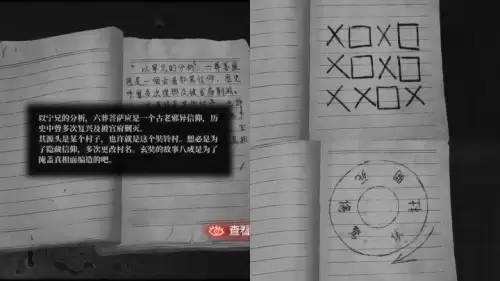 "以宁兄的分析,六葬菩萨
应是一个古老邪异信仰,历史
中曾多次复兴及被官府剿灭。
以宁兄的分析，六葬菩萨应是一个古老邪异信仰，历
史中曾多次复兴及被官府剿灭。
其源头是某个村子，也许就是这个奘铃村。想必是为
了隐藏信仰，多次更改村名。玄奘的故事八成是为了
掩盖真相而编造的吧。
查看